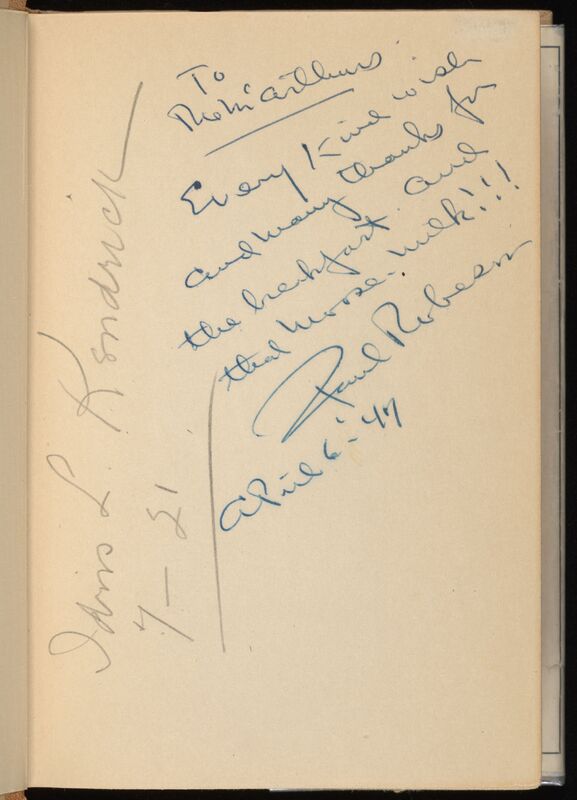 To
The McArthurs.
Every Kind wish
and many thanks for
the breakfast and
that moose-milk!!!
Paul Robeson
April 6-'47
L. Kendrick
7-51